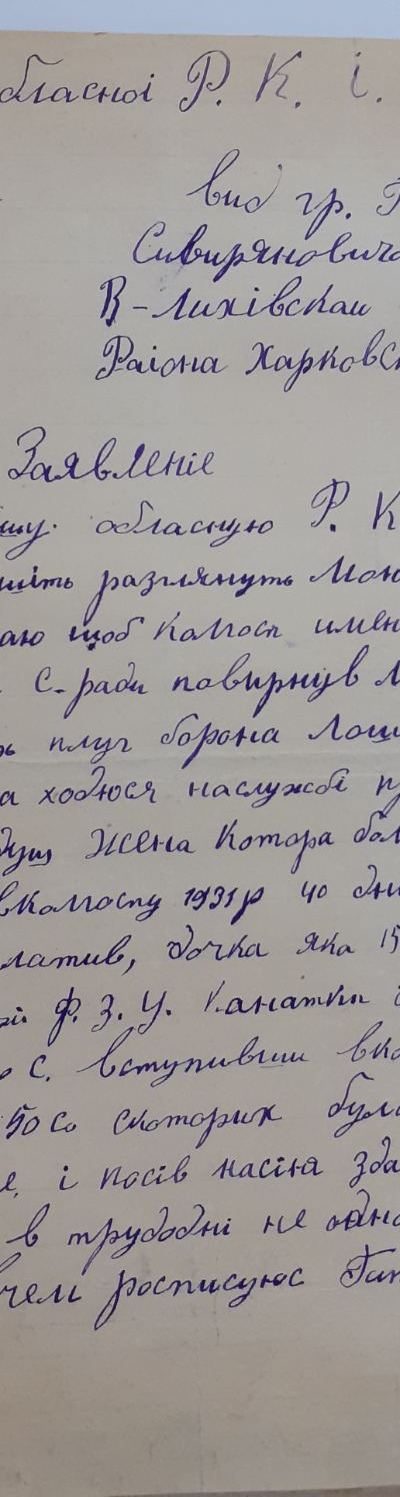 обласноі Р. К. І.
вид гр.
Сивиряновича
В-Лихівскаи
Раіона Харковс
Заявленіе
обласную Р. К
разглянуть мою
щоб колгосп имен
С. ради повирнув
плуг борона лош
ходюся наслужбі
жена котора бол
вколгоспу 1931р 40 дн
латив, дочка яка 15
Ф. З. У. Канатки
с. вступивши вко
50 со скоторих була
і посів насіня зда
в трудодні не одно
чем росписуюс Гап